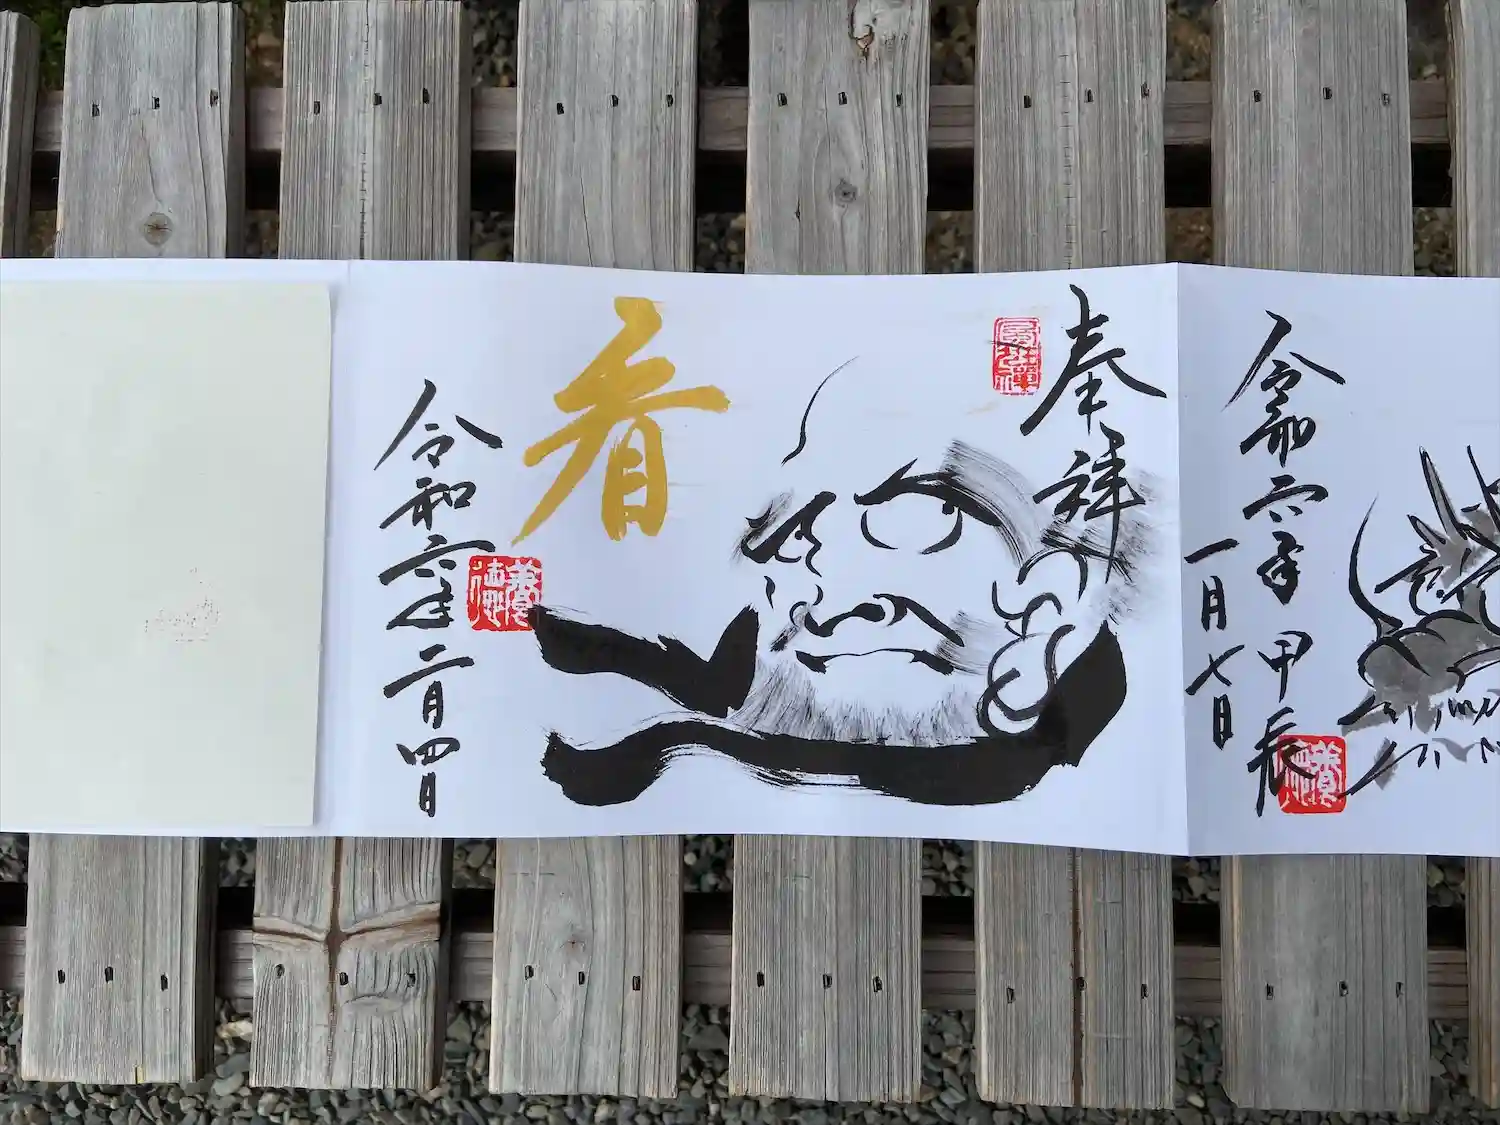 令和六年甲辰
一月七日
奉拝
看
令和六年二月四日
養徳